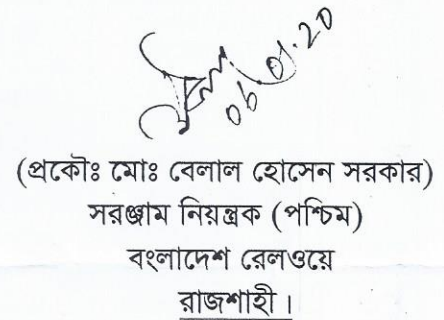 ০৮.০১.২০
(প্রকৌঃ মোঃ বেলাল হোসেন সরকার)
সরঞ্জাম নিয়ন্ত্রক (পশ্চিম)
বংলাদেশ রেলওয়ে
রাজশাহী।